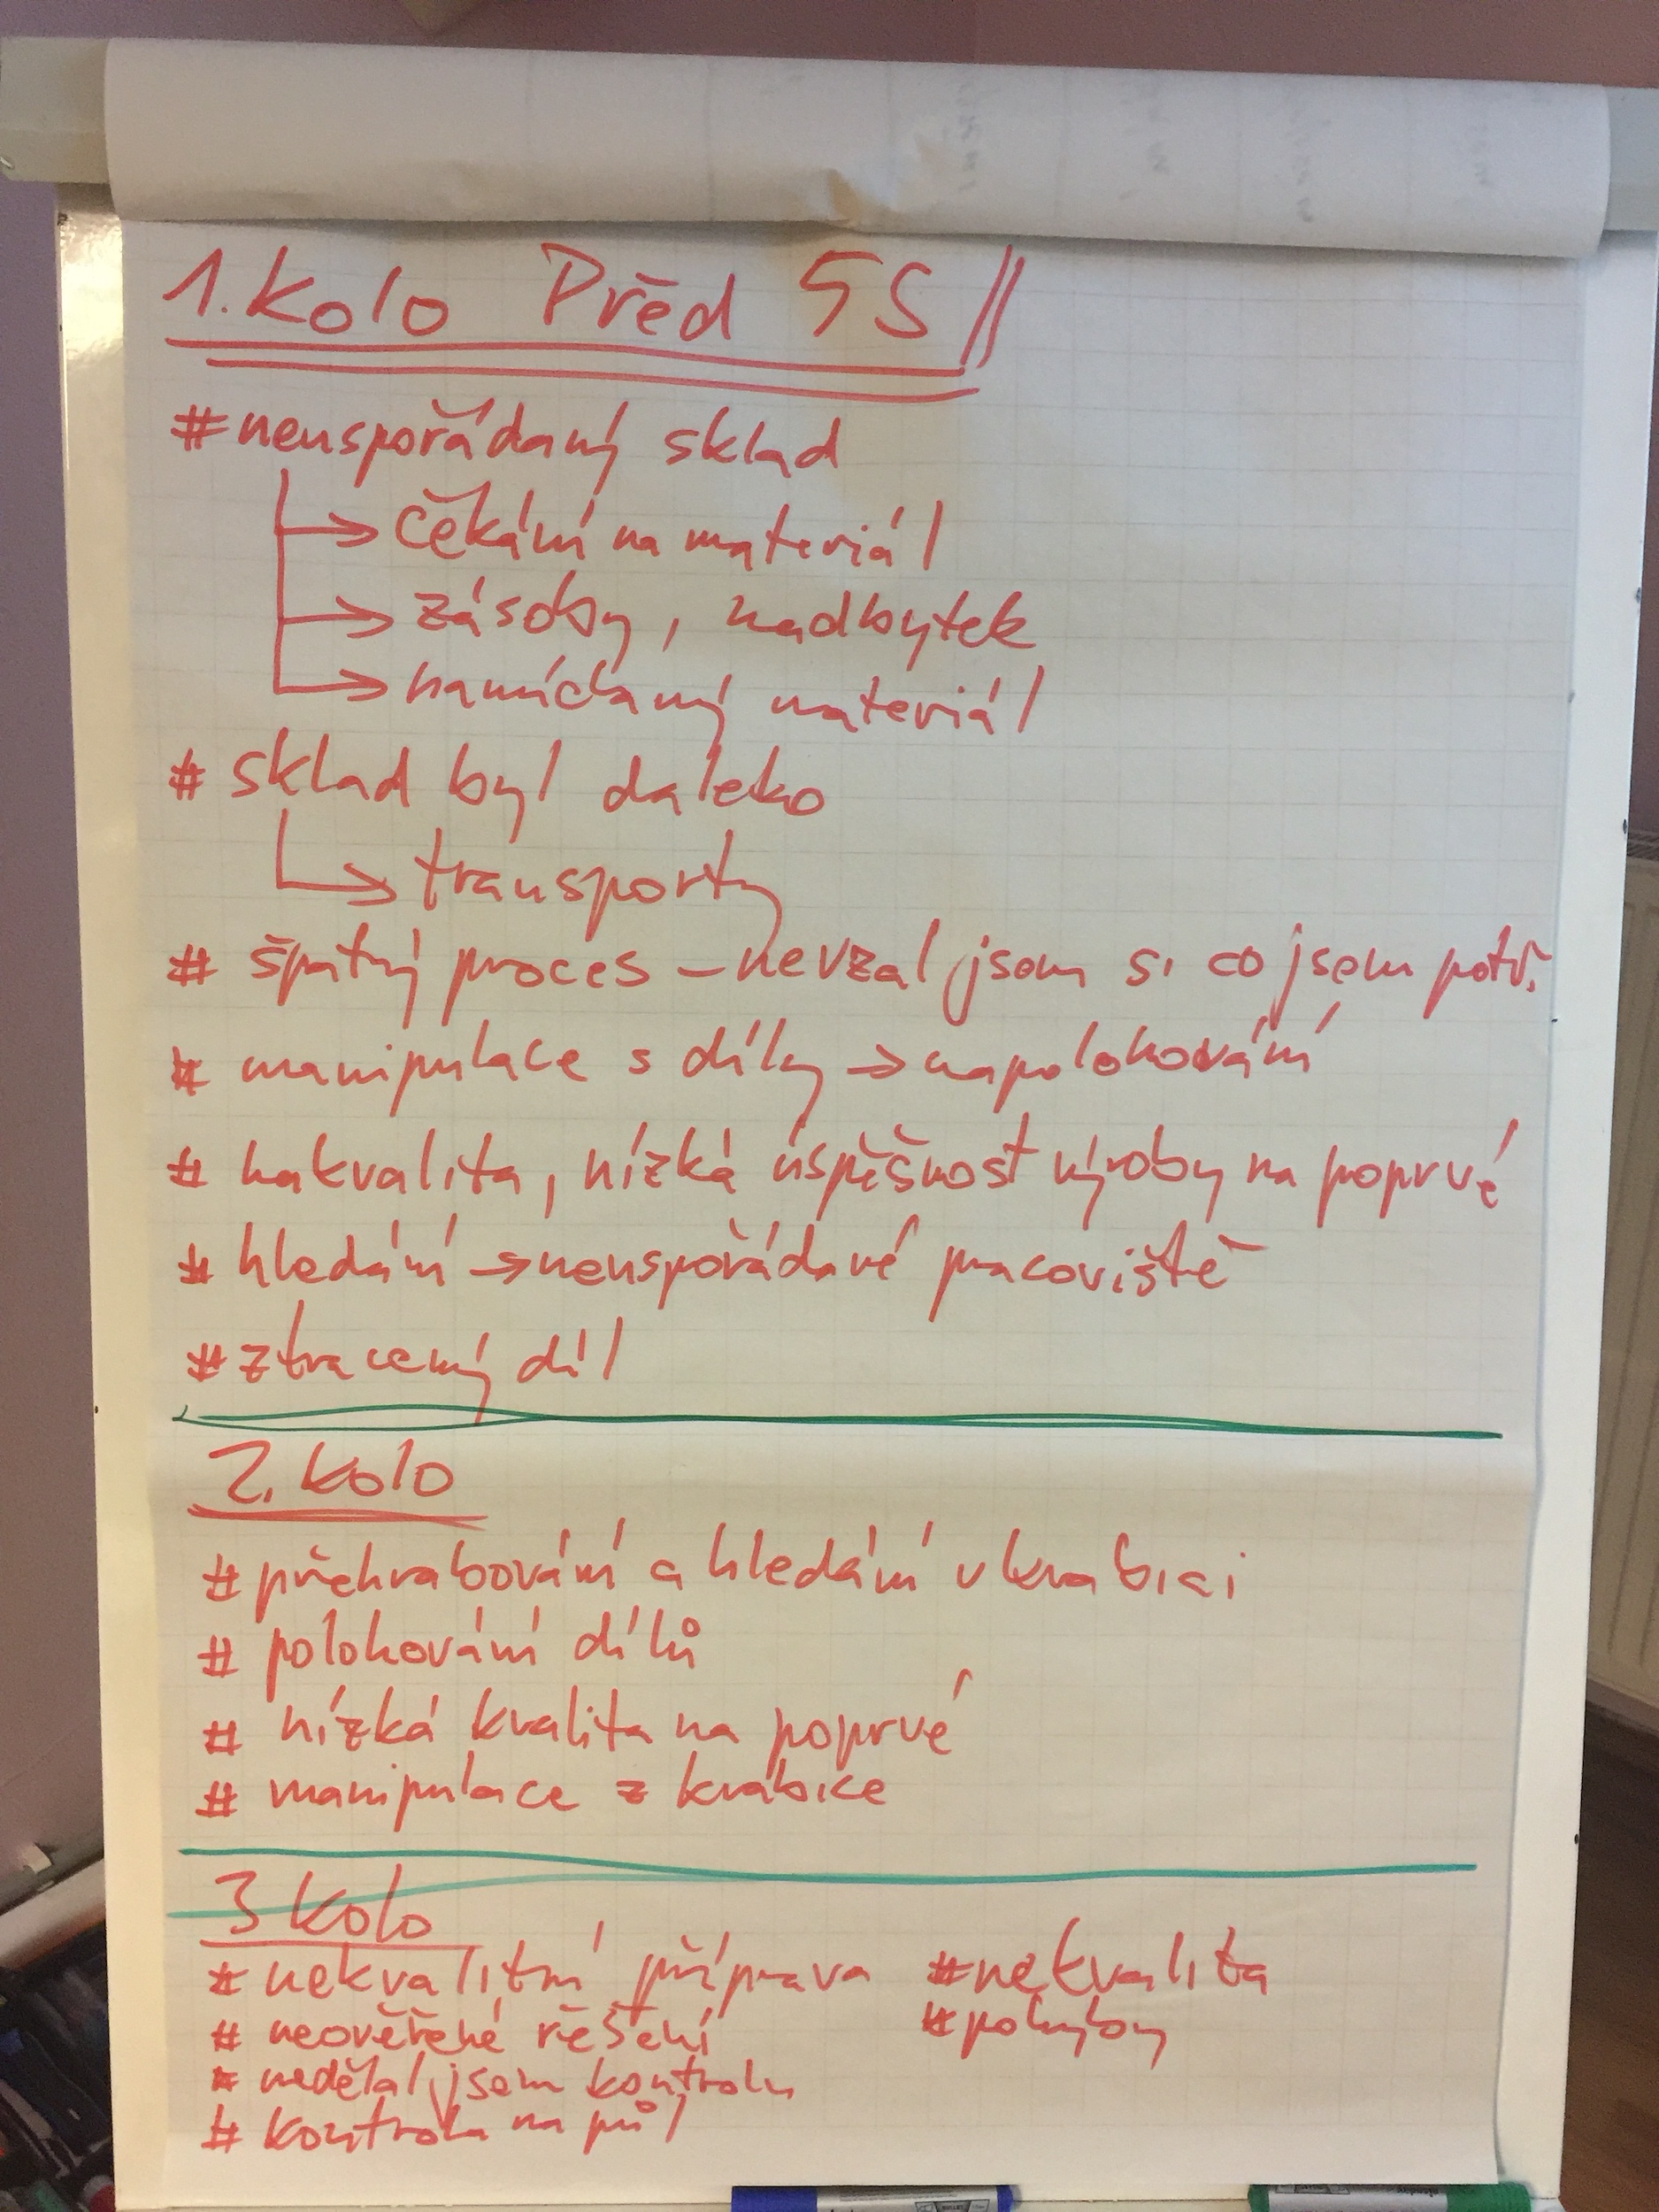 1. Kolo Před 5S
# neuspořádaný sklad
→ čekání na materiál
→ zásoby, nadbytek
→ namíchaný materiál
# sklad byl daleko
→ transporty
# špatný proces – nevzal jsem si co jsem potř.
# manipulace s díly → napolohování
# nakvalita, nízká úspěšnost výroby na poprvé
# hledání → neuspořádané pracoviště
# ztracený díl
2. kolo
# přehrabování a hledání v krabici
# polohování dílů
# nízká kvalita na poprvé
# manipulace z krabice
3 kolo
# nekvalitní příprava
# neověřené řešení
# nedělal jsem kontrolu
# kontrola na půl
# nekvalita
# pohyby